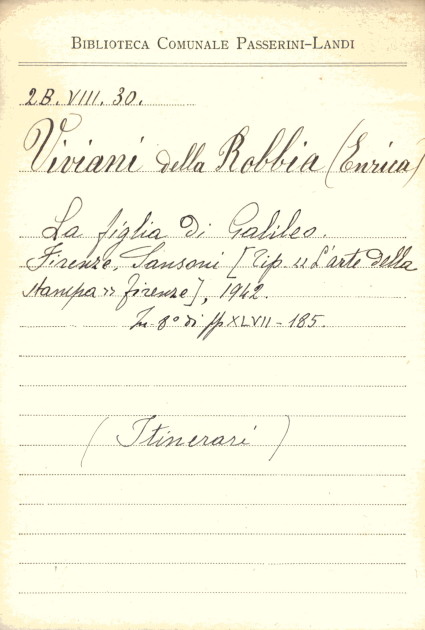 BIBLIOTECA COMUNALE PASSERINI-LANDI
2B. VIII. 30.
Viviani della Robbia (Enrica)
La figlia di Galileo.
Firenze, Sansoni [Tip. "L'arte della
Stampa" Firenze], 1942.
In 8° di pp XLVII - 185.
(Itinerari)